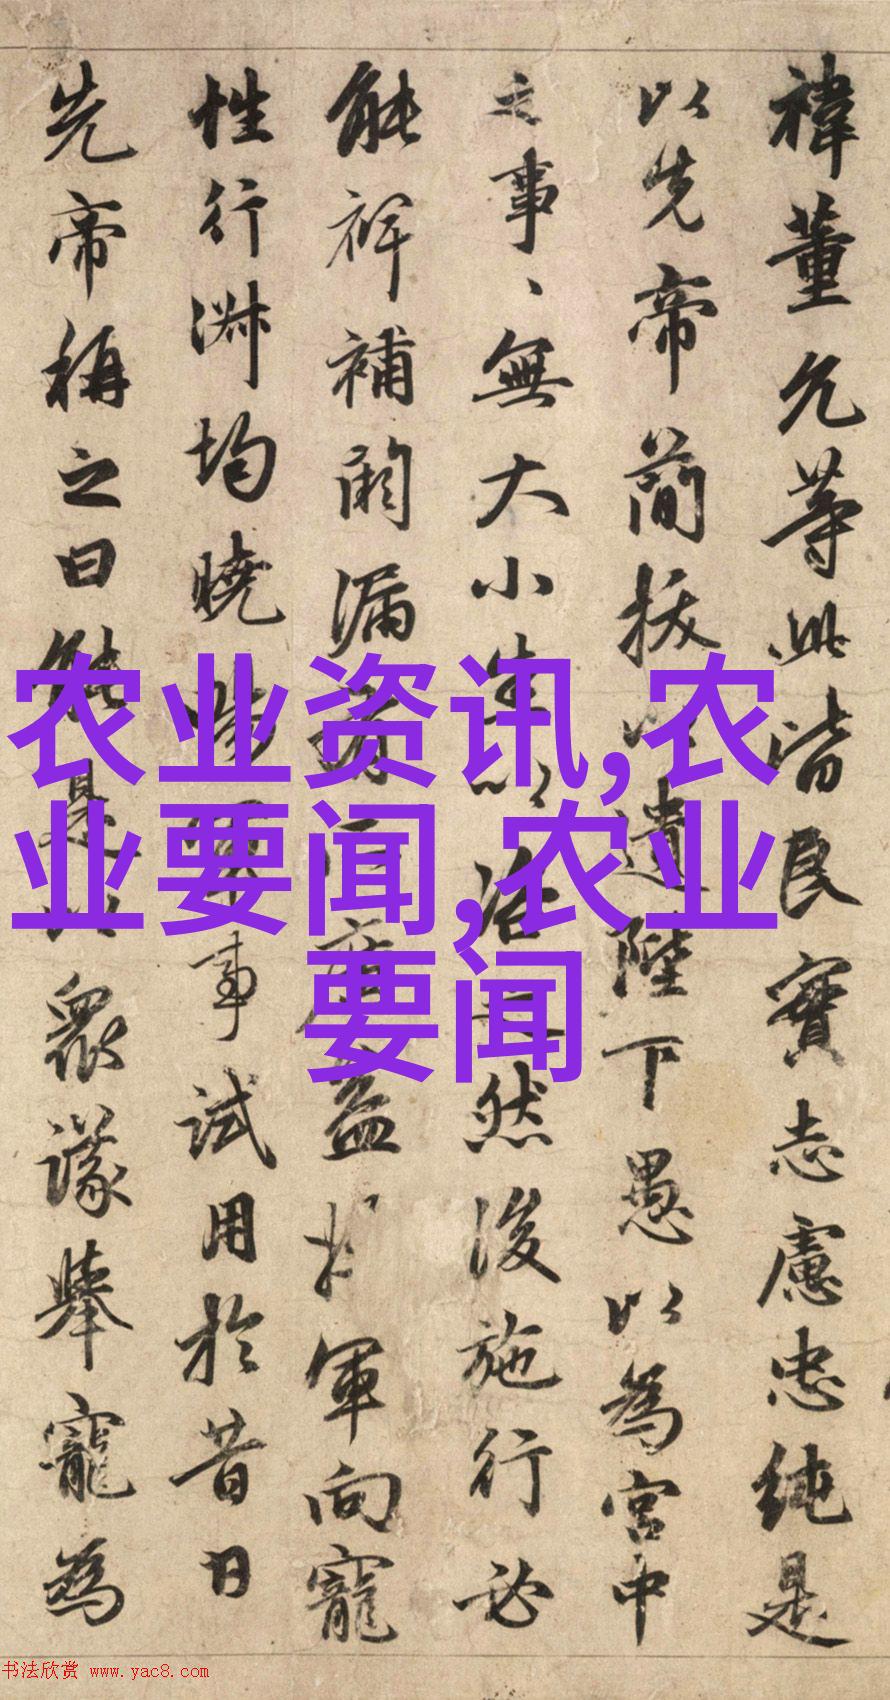 禕董允等此皆良實志慮忠純是
以先帝簡拔以遺陛下愚以為宮中
之事、無大小悉以咨之然後施行必
能裨補闕漏有所廣益將軍向寵
性行淑均曉暢軍事試用於昔日
先帝稱之曰能是以衆議舉寵為
农业资讯,农
业要闻,农业
要闻
书法欣赏 www.yac8.com